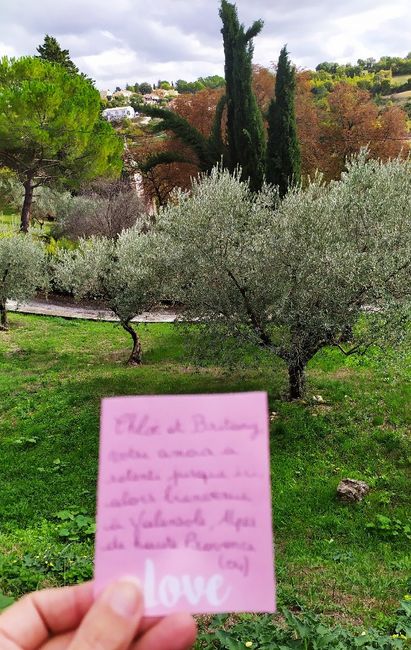 Chloé et Britany
votre amour a
retenti jusque ici
alors bienvenue
à Valensole, Alpes
de haute Provence
(04)
love